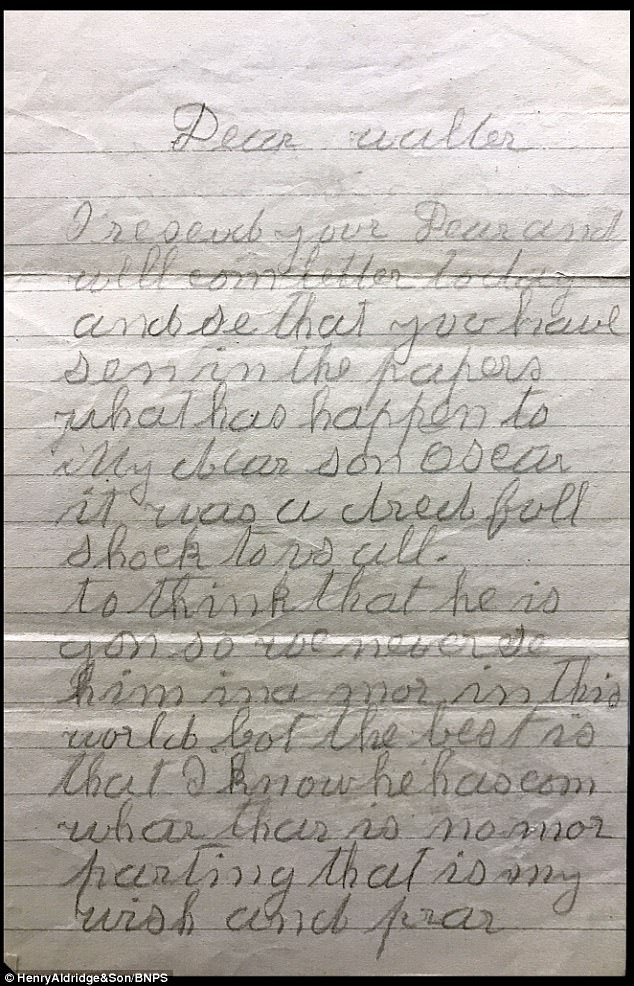 Dear walter
I reseveb your Dear and
well com letter today
and se that you have
sen in the papers
what has happen to
My dear son Oscar
it was a dred full
shock to us all.
to think that he is
gon so we never se
him ina mor in this
world bot the best is
that I know he has com
whar thar is no mor
parting that is my
wish and prar
© HenryAldridge&Son/BNPS